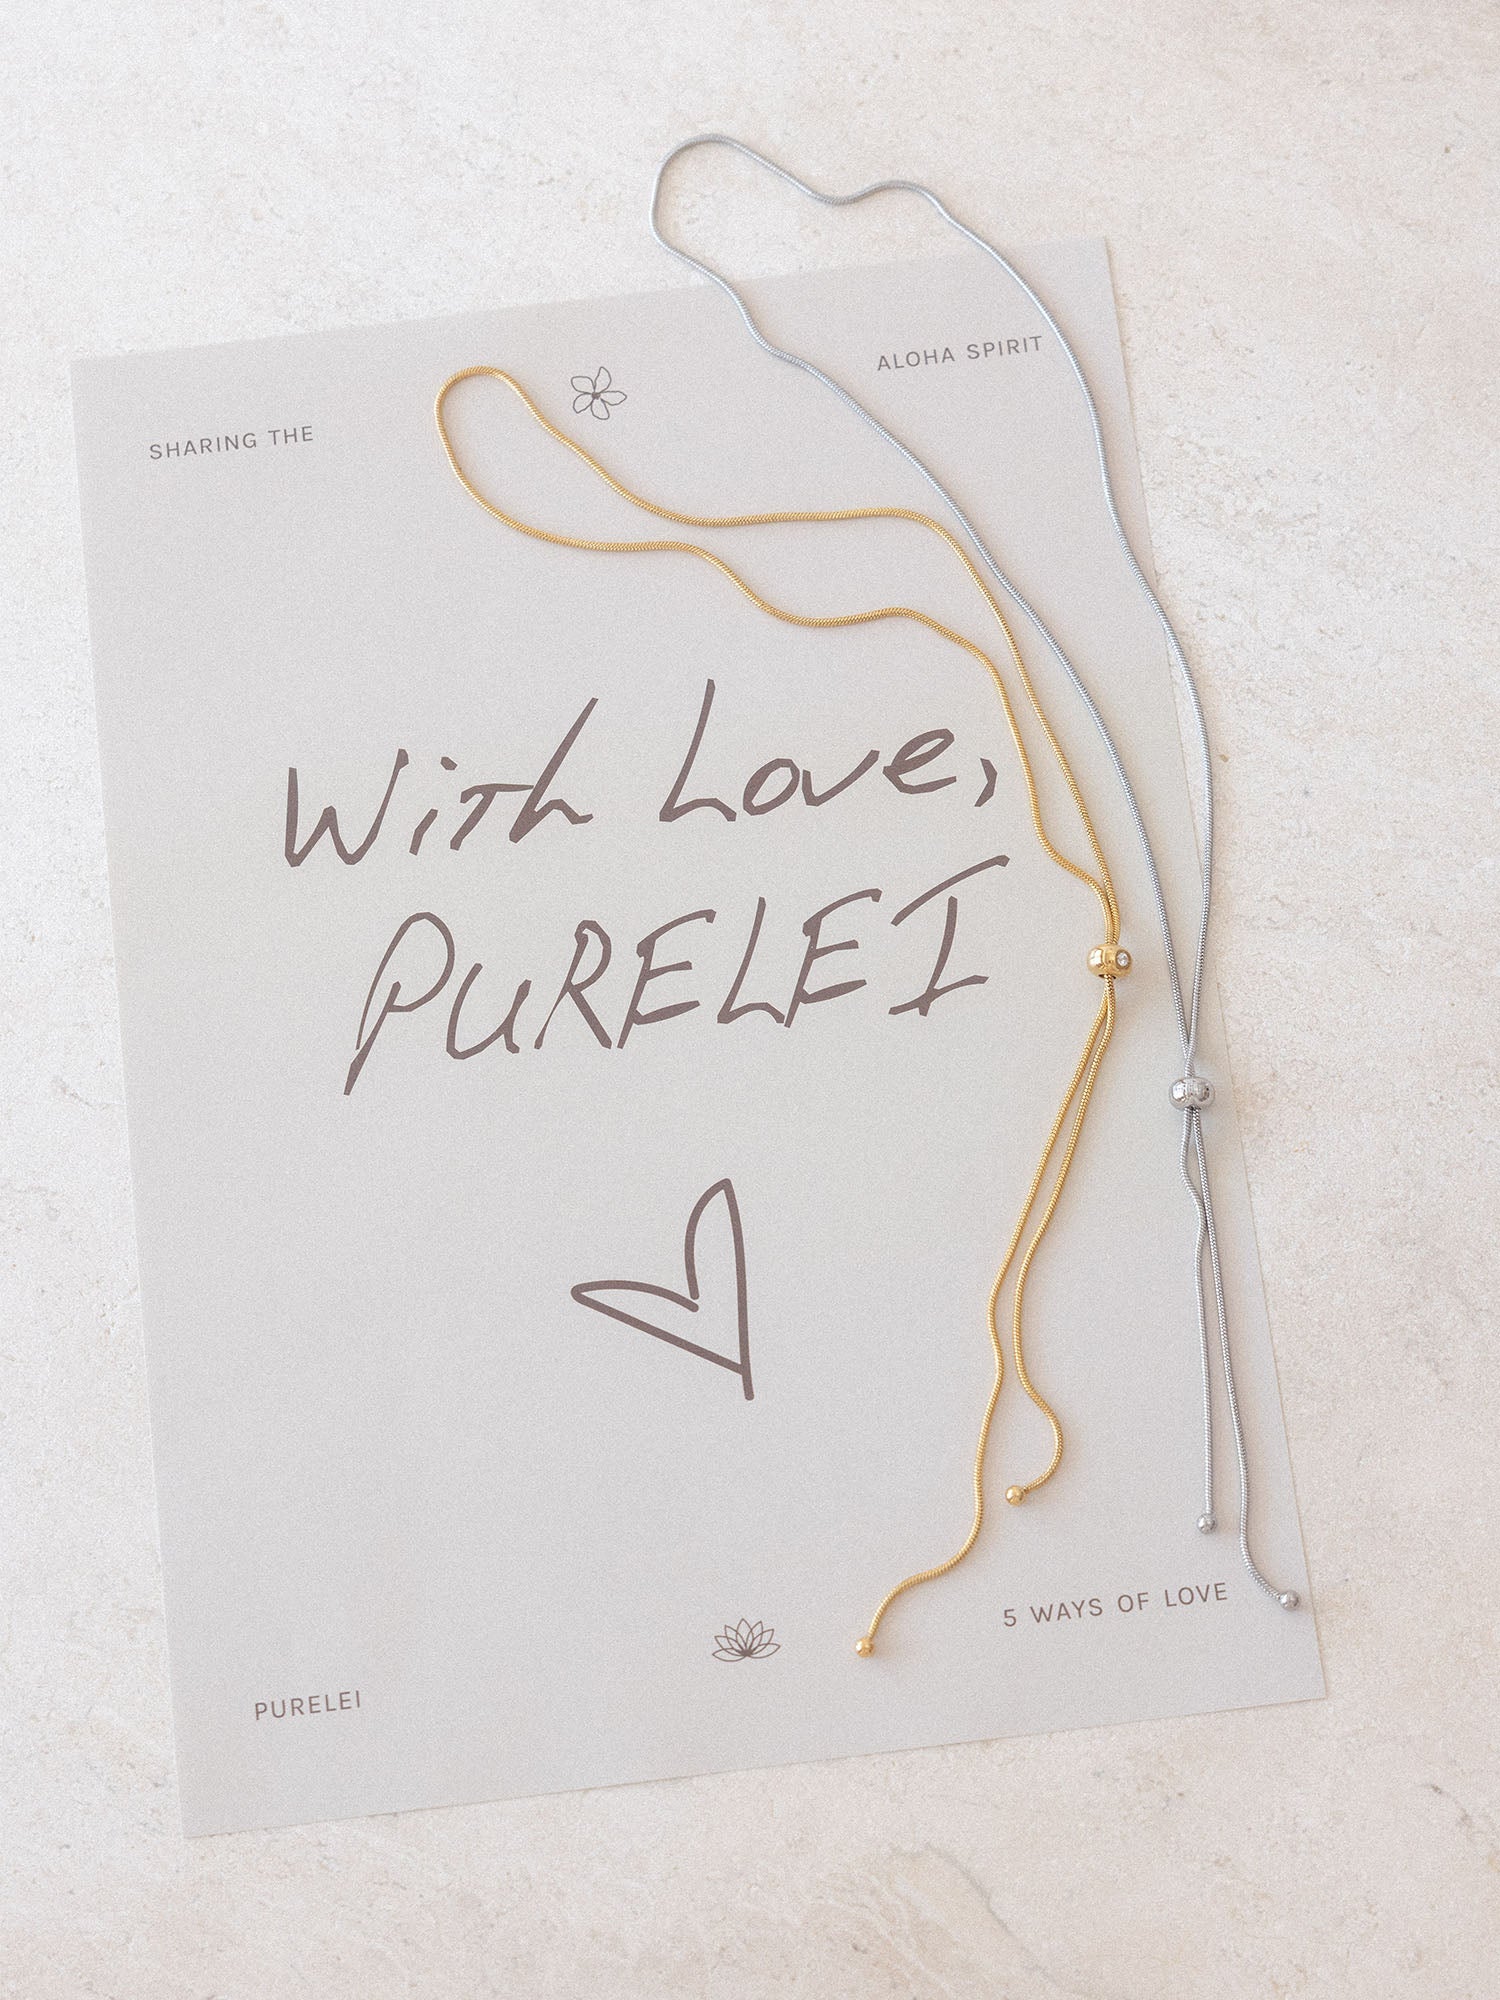 SHARING THE
ALOHA SPIRIT
With Love,
PURELEI
5 WAYS OF LOVE
PURELEI